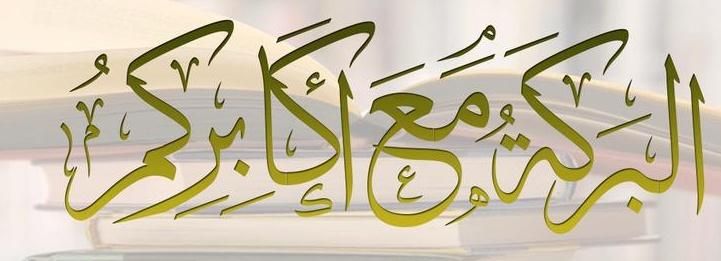 البَركةُ مَعَ أَكَابِرِكُم